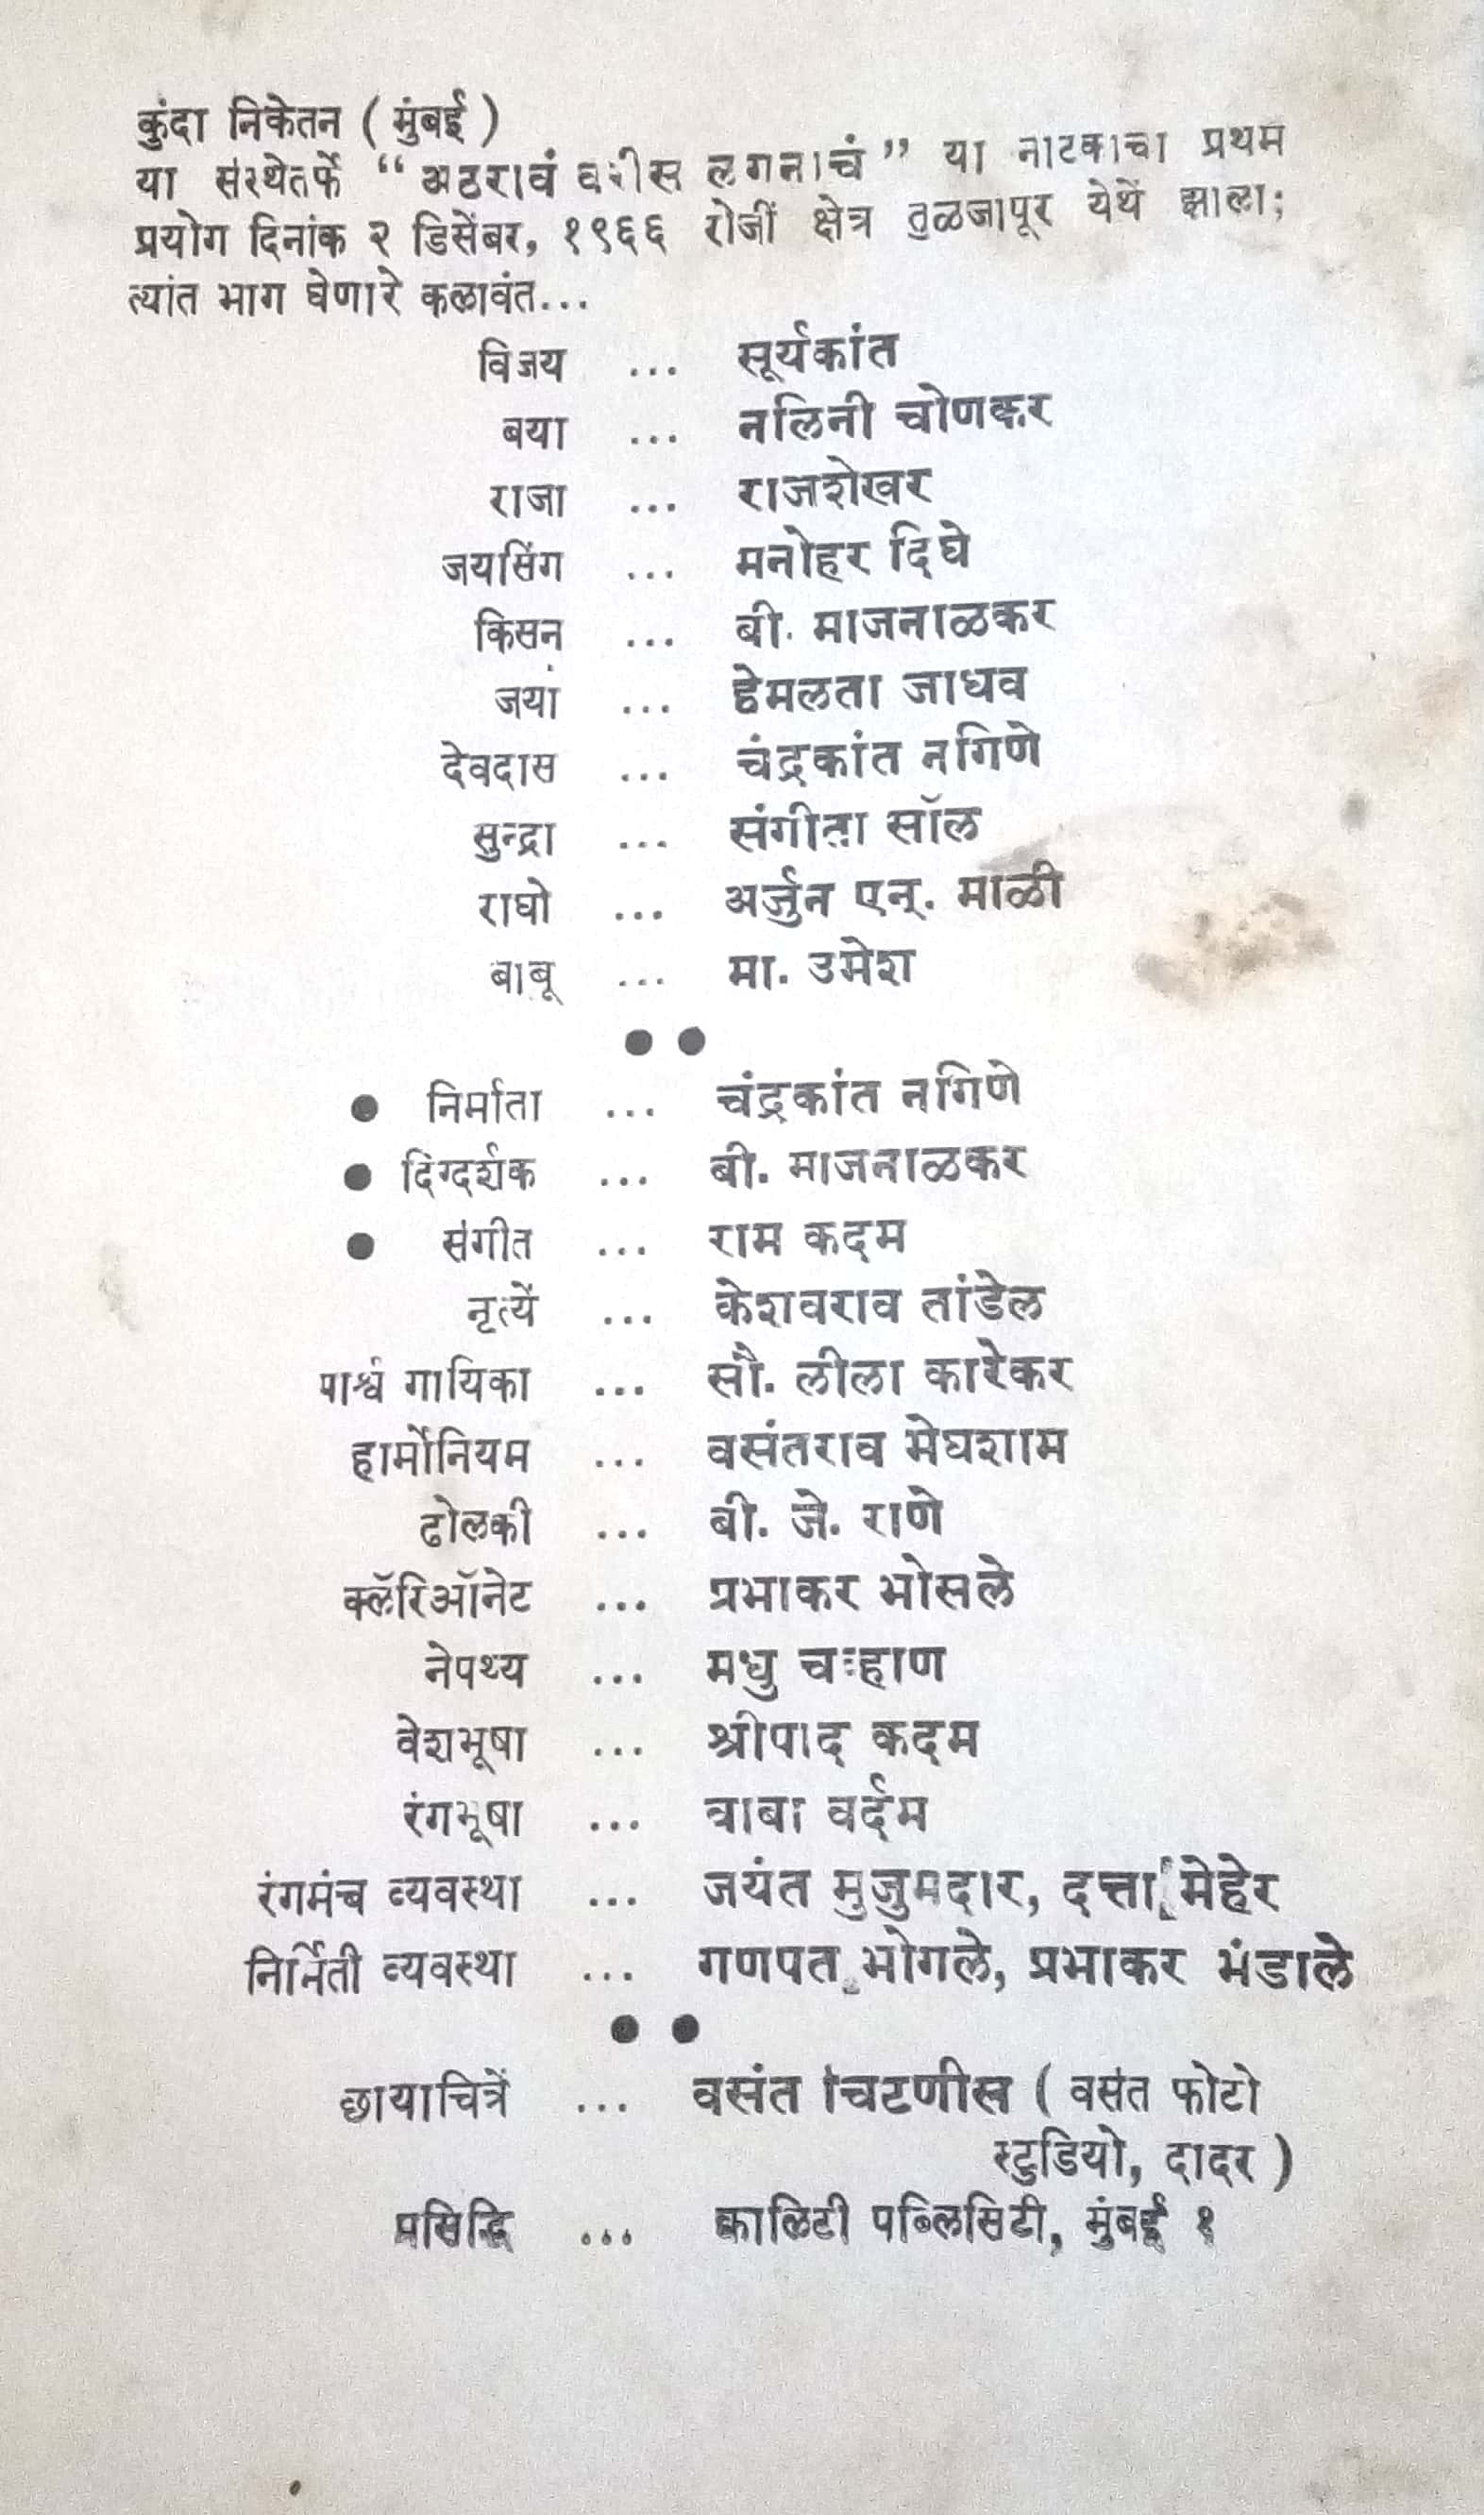 कुंदा निकेतन ( मुंबई )
या संस्थेतर्फे “ अठरावं वरीस लगनाचं ” या नाटकाचा प्रथम
प्रयोग दिनांक २ डिसेंबर, १९६६ रोजीं क्षेत्र तुळजापूर येथें झाला;
त्यांत भाग घेणारे कळावंत...
विजय ... सूर्यकांत
बया ... नलिनी चोणकर
राजा ... राजशेखर
जयसिंग ... मनोहर दिघे
किसन ... बी. माजनाळकर
जया ... हेमलता जाधव
देवदास ... चंद्रकांत नगिणे
सुन्द्रा ... संगीता सॉल
राघो ... अर्जुन एन्. माळी
बाबू ... मा. उमेश
● ●
● निर्माता ... चंद्रकांत नगिणे
● दिग्दर्शक ... बी. माजनाळकर
● संगीत ... राम कदम
नृत्यें ... केशवराव तांडेल
पार्श्व गायिका ... सौ. लीला कारेकर
हार्मोनियम ... वसंतराव मेघशाम
ढोलकी ... बी. जे. राणे
क्लॅरिऑनेट ... प्रभाकर भोसले
नेपथ्य ... मधु चव्हाण
वेशभूषा ... श्रीपाद कदम
रंगभूषा ... बाबा वर्दम
रंगमंच व्यवस्था ... जयंत मुजुमदार, दत्ता मेहेर
निर्मिती व्यवस्था ... गणपत भोगले, प्रभाकर भंडाले
● ●
छायाचित्रें ... वसंत चिटणीस ( वसंत फोटो
स्टुडियो, दादर )
प्रसिद्धि ... क्वालिटी पब्लिसिटी, मुंबई १